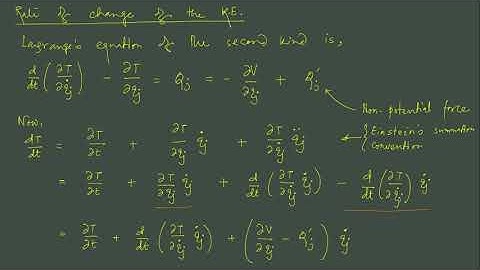 Rate of change of the K.E.
Lagrange's equation of the second kind is,
d/dt (∂T/∂q̇j) − ∂T/∂qj = Qj = − ∂V/∂qj + Qj′
Non-potential force
Now,
dT/dt = ∂T/∂t + ∂T/∂qj q̇j + ∂T/∂q̇j q̈j
{Einstein's summation
Convention
= ∂T/∂t + ∂T/∂qj q̇j + d/dt (∂T/∂q̇j q̇j) − d/dt (∂T/∂q̇j) q̇j
= ∂T/∂t + d/dt (∂T/∂q̇j q̇j) + (∂V/∂qj − Qj′) q̇j